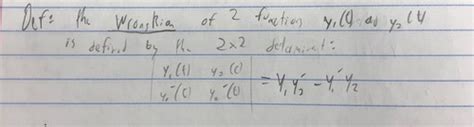 Def: the Wronskian of 2 functions y₁(t) and y₂(t)
is defined by the 2x2 determinant:
| y₁(t) y₂(t) |
| y₁'(t) y₂'(t) | = y₁y₂' - y₁'y₂